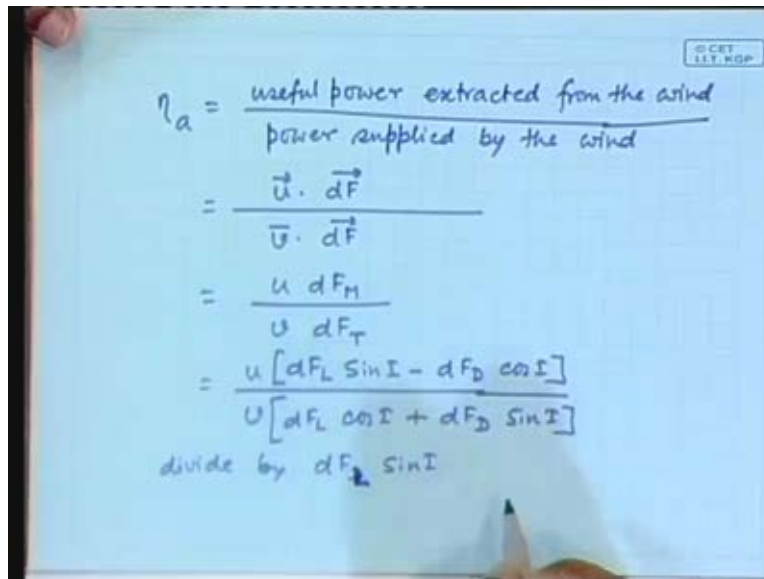 © CET
I.I.T. KGP
ηₐ = useful power extracted from the wind
power supplied by the wind
= u⃗ . dF⃗
ῡ . dF⃗
= u dF_M
υ dF_T
= u [dF_L sin I - dF_D cos I]
υ [dF_L cos I + dF_D sin I]
divide by dF_L sin I